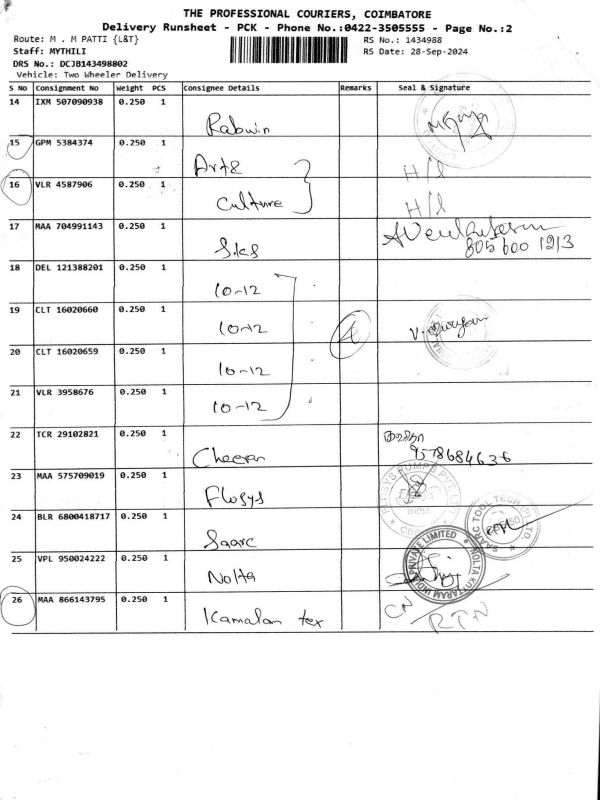 THE PROFESSIONAL COURIERS, COIMBATORE
Delivery Runsheet - PCK - Phone No.:0422-3505555 - Page No.:2
Route: M . M PATTI {L&T}
RS No.: 1434988
Staff: MYTHILI
RS Date: 28-Sep-2024
DRS No.: DCJB143498802
Vehicle: Two Wheeler Delivery
S No Consignment No Weight PCS Consignee Details Remarks Seal & Signature
14 IXM 507090938 0.250 1 Rabwin
15 GPM 5384374 0.250 1 Arts H/l
16 VLR 4587906 0.250 1 Culture H/l
17 MAA 704991143 0.250 1 S.k.s 805 600 1213
18 DEL 121388201 0.250 1 10-12
19 CLT 16020660 0.250 1 10-12 4
20 CLT 16020659 0.250 1 10-12
21 VLR 3958676 0.250 1 10-12
22 TCR 29102821 0.250 1 Cheeran 9578684636
23 MAA 575709019 0.250 1 Flosys
24 BLR 6800418717 0.250 1 Saarc
25 VPL 950024222 0.250 1 Nolta
26 MAA 866143795 0.250 1 Kamalam tex CN / RTN
FLOSYS PUMPS PVT LTD
INDIA
SAARC TOOL TECH (P) LTD
NOLTA KOTTARAM INDIA PRIVATE LIMITED